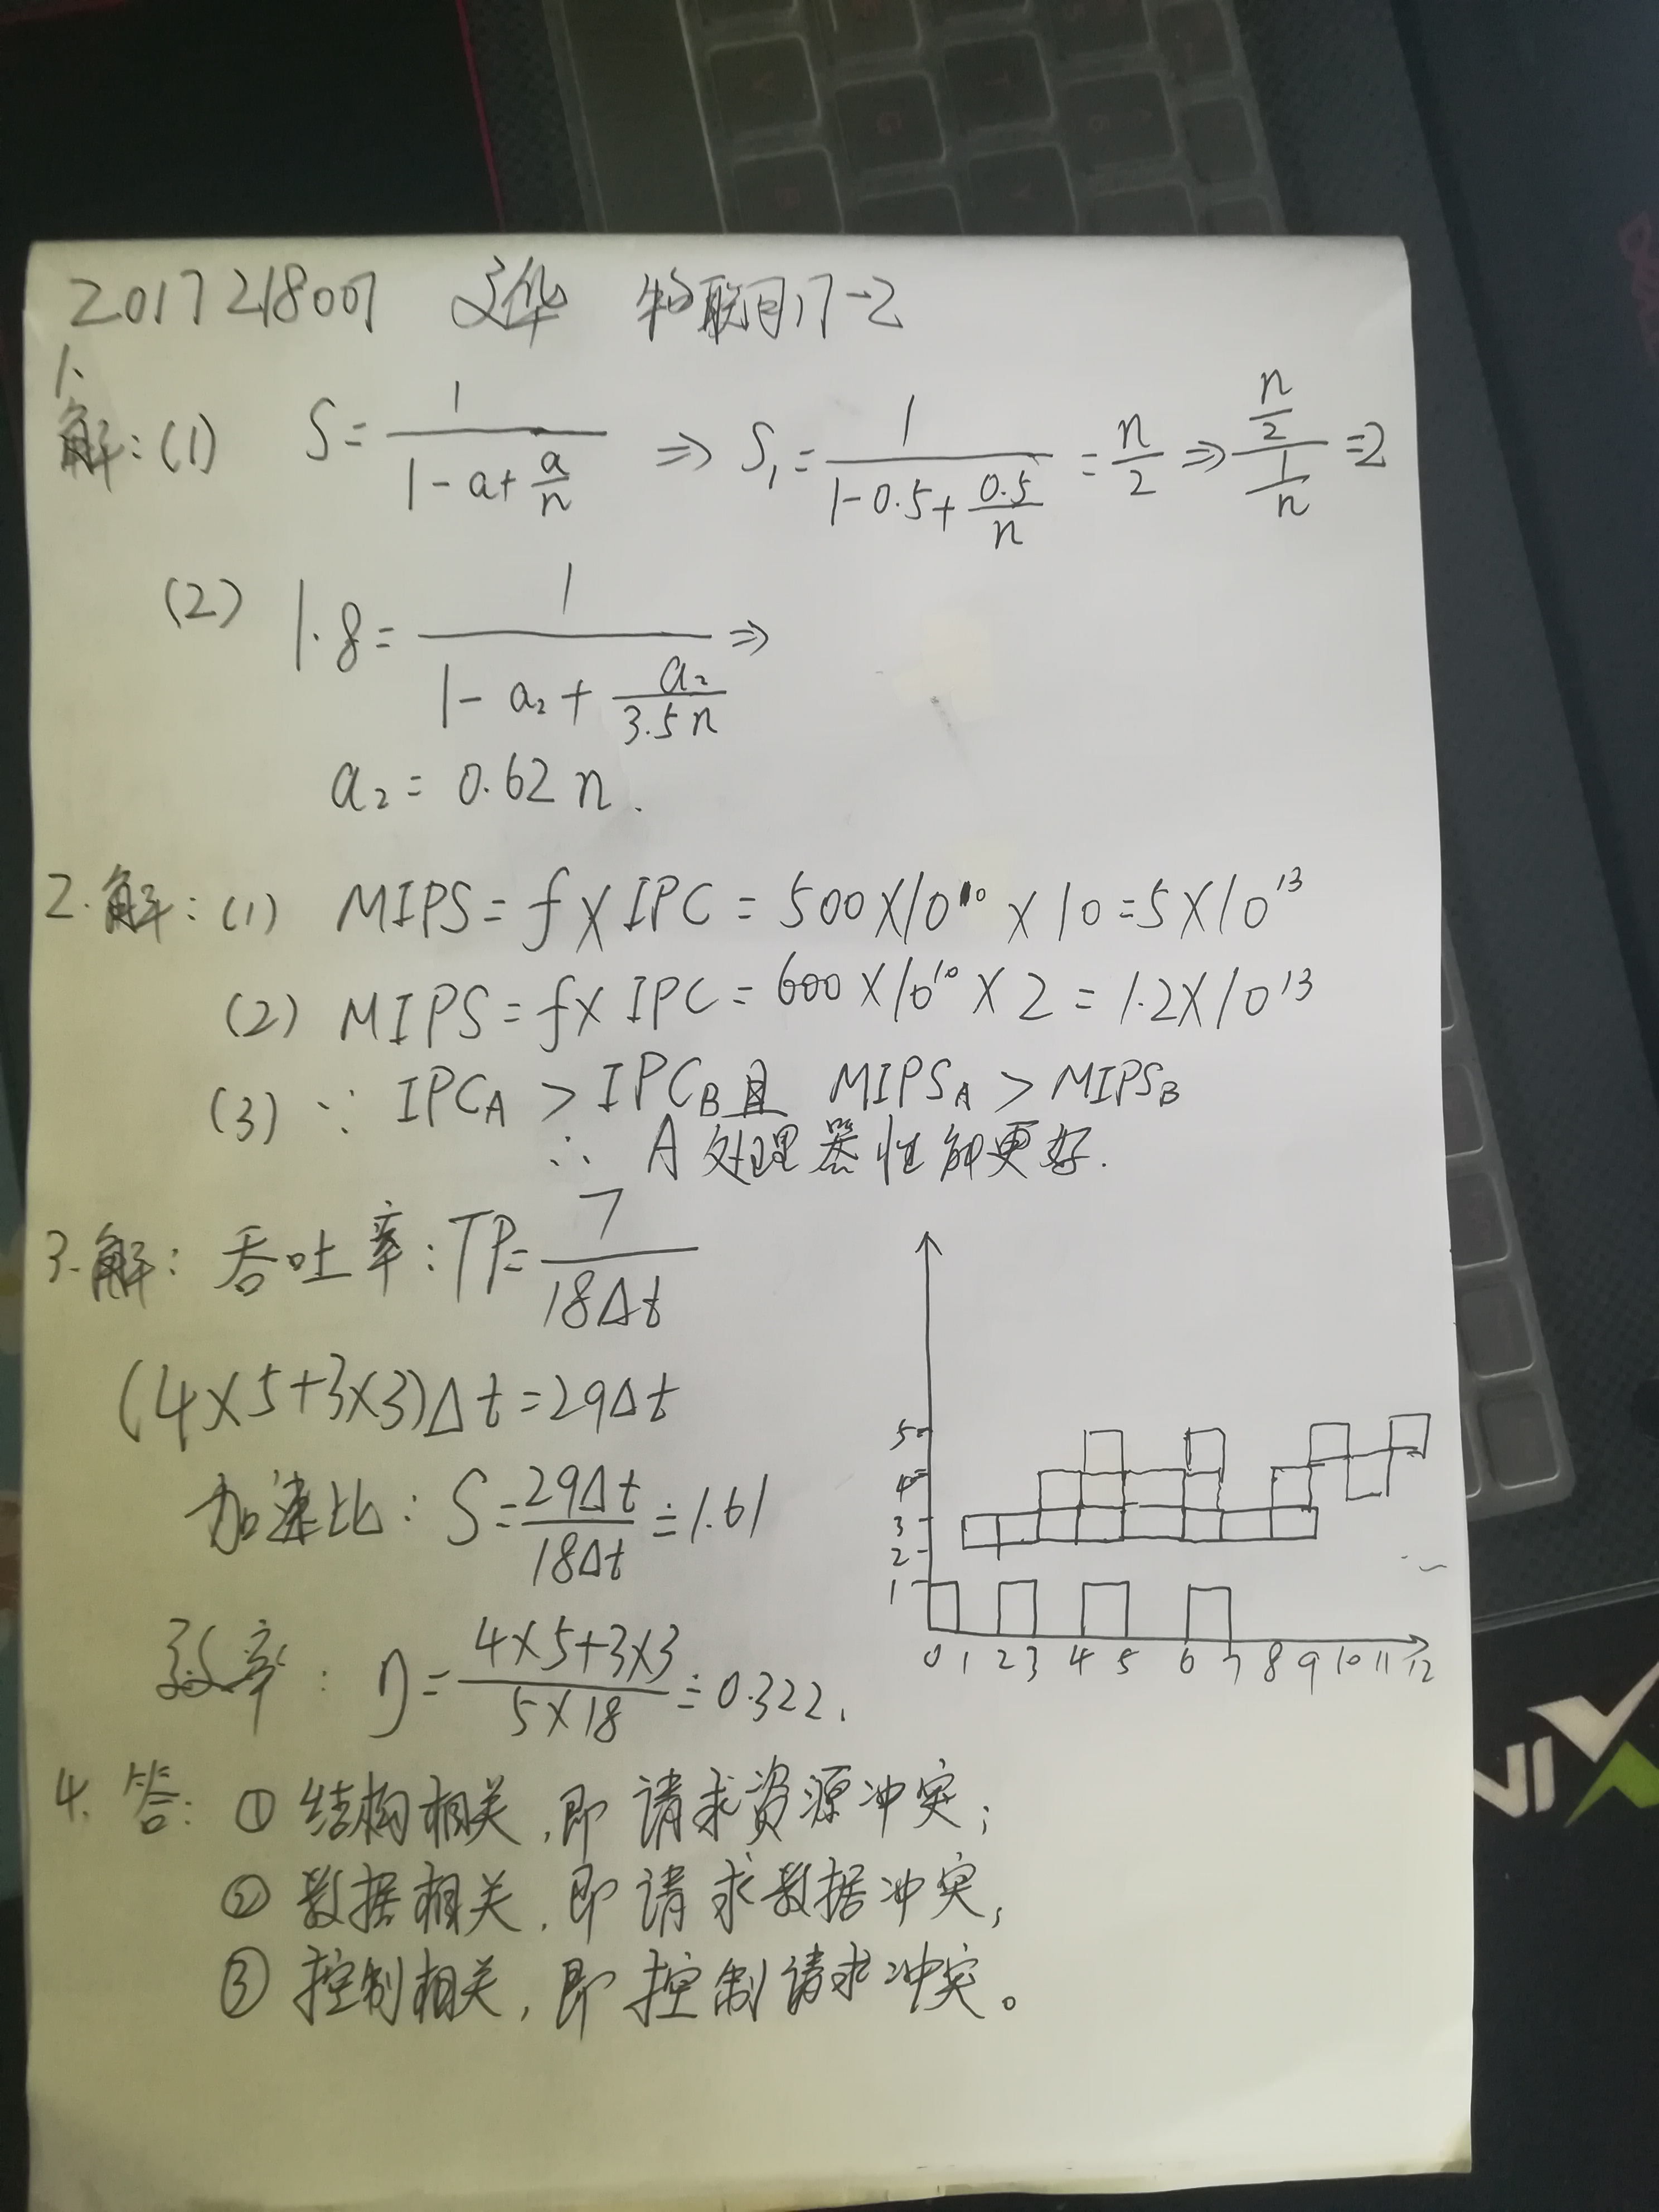 2017218007 文华 物联网17-2
1、
解:(1) S = 1/(1-a+a/n) ⇒ S₁ = 1/(1-0.5+0.5/n) = n/2 ⇒ (n/2)/(1/n) = 2
(2) 1.8 = 1/(1-a₂+a₂/3.5n) ⇒
a₂ = 0.62 n.
2.解:(1) MIPS = f × IPC = 500×10¹⁰ × 10 = 5×10¹³
(2) MIPS = f× IPC = 600×10¹⁰ × 2 = 1.2×10¹³
(3) ∵ IPC_A > IPC_B 且 MIPS_A > MIPS_B
∴ A处理器性能更好.
3.解: 吞吐率: TP = 7/18Δt
(4×5+3×3)Δt = 29Δt
加速比: S = 29Δt/18Δt = 1.61
效率: η = (4×5+3×3)/(5×18) = 0.322.
5
4
3
2
1
0 1 2 3 4 5 6 7 8 9 10 11 12
4. 答: ① 结构相关,即请求资源冲突;
② 数据相关,即请求数据冲突;
③ 控制相关,即控制请求冲突。
VI